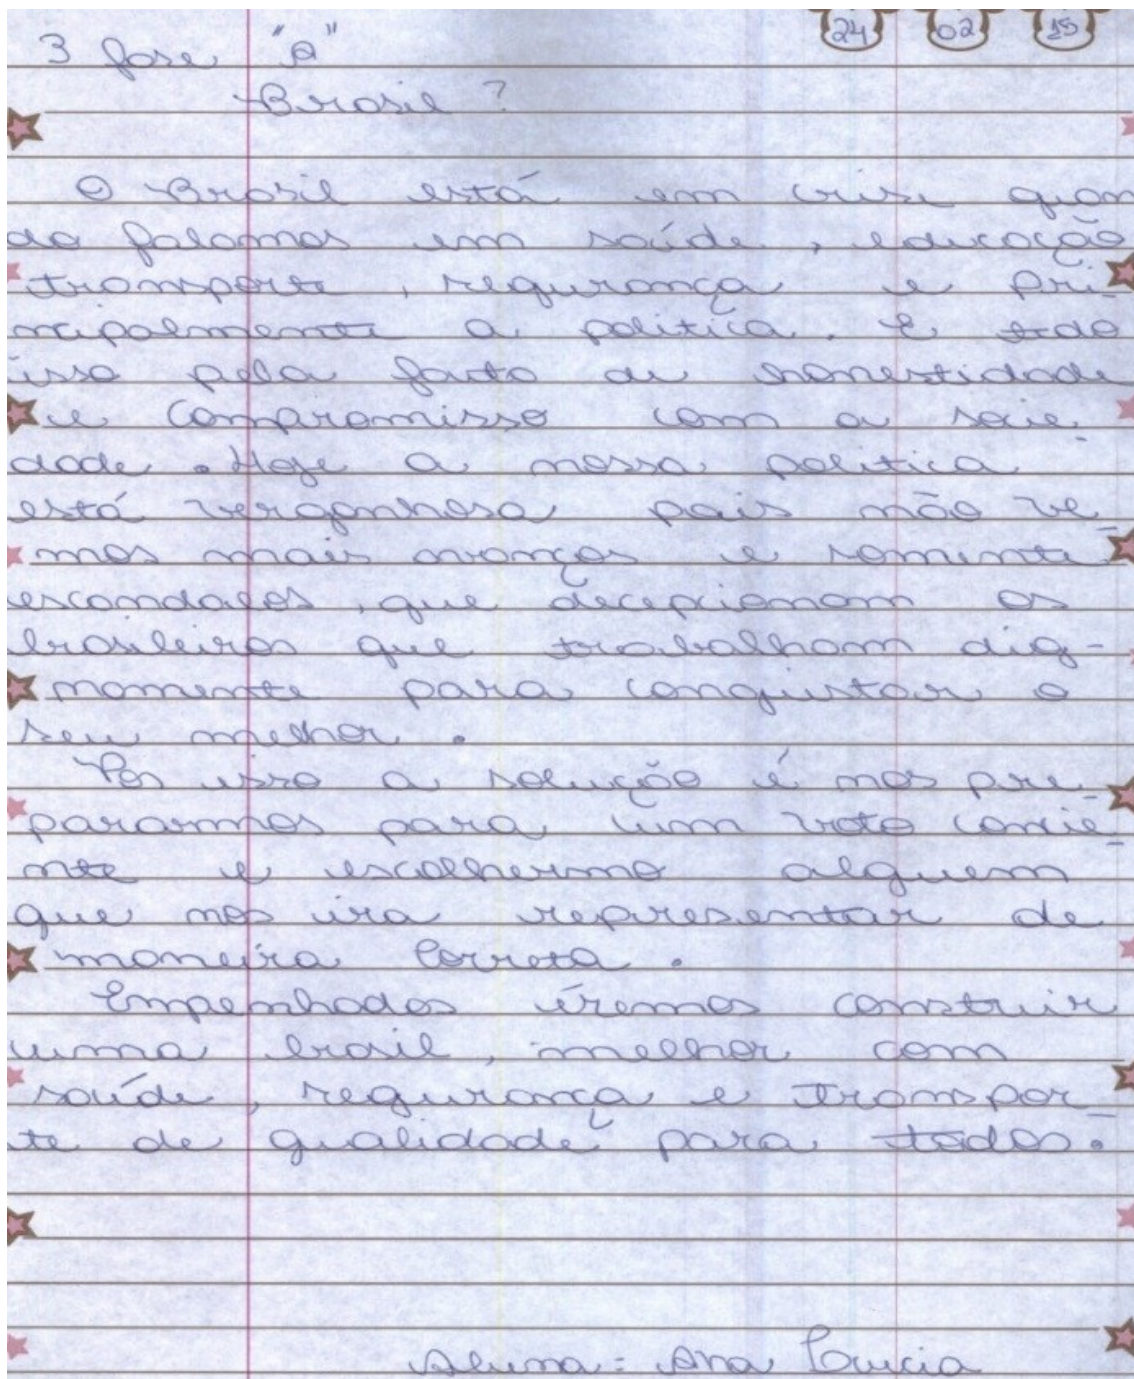 24 02 15
3 fase "A"
Brasil ?
O Brasil está em crise quan
do falamos em saúde, educação
transporte, segurança e pri-
ncipalmente a politica. E tudo
isso pela farta de honestidade
e compromisso com a socie-
dade. Hoje a nossa politica
está vergonhosa pois não ve-
mos mais avanços e somente
escandalos, que decepcionam os
brasileiros que trabalham dig-
namente para conquistar o
seu melhor.
Por isso a solução é nos pre-
pararmos para um voto concie-
nte e escolhermo alguem
que nos ira representar de
maneira correta.
Empenhados iremos construir
uma brasil, melhor com
saúde, segurança e transpor-
te de qualidade para todos.
Aluna: Ana Lucia